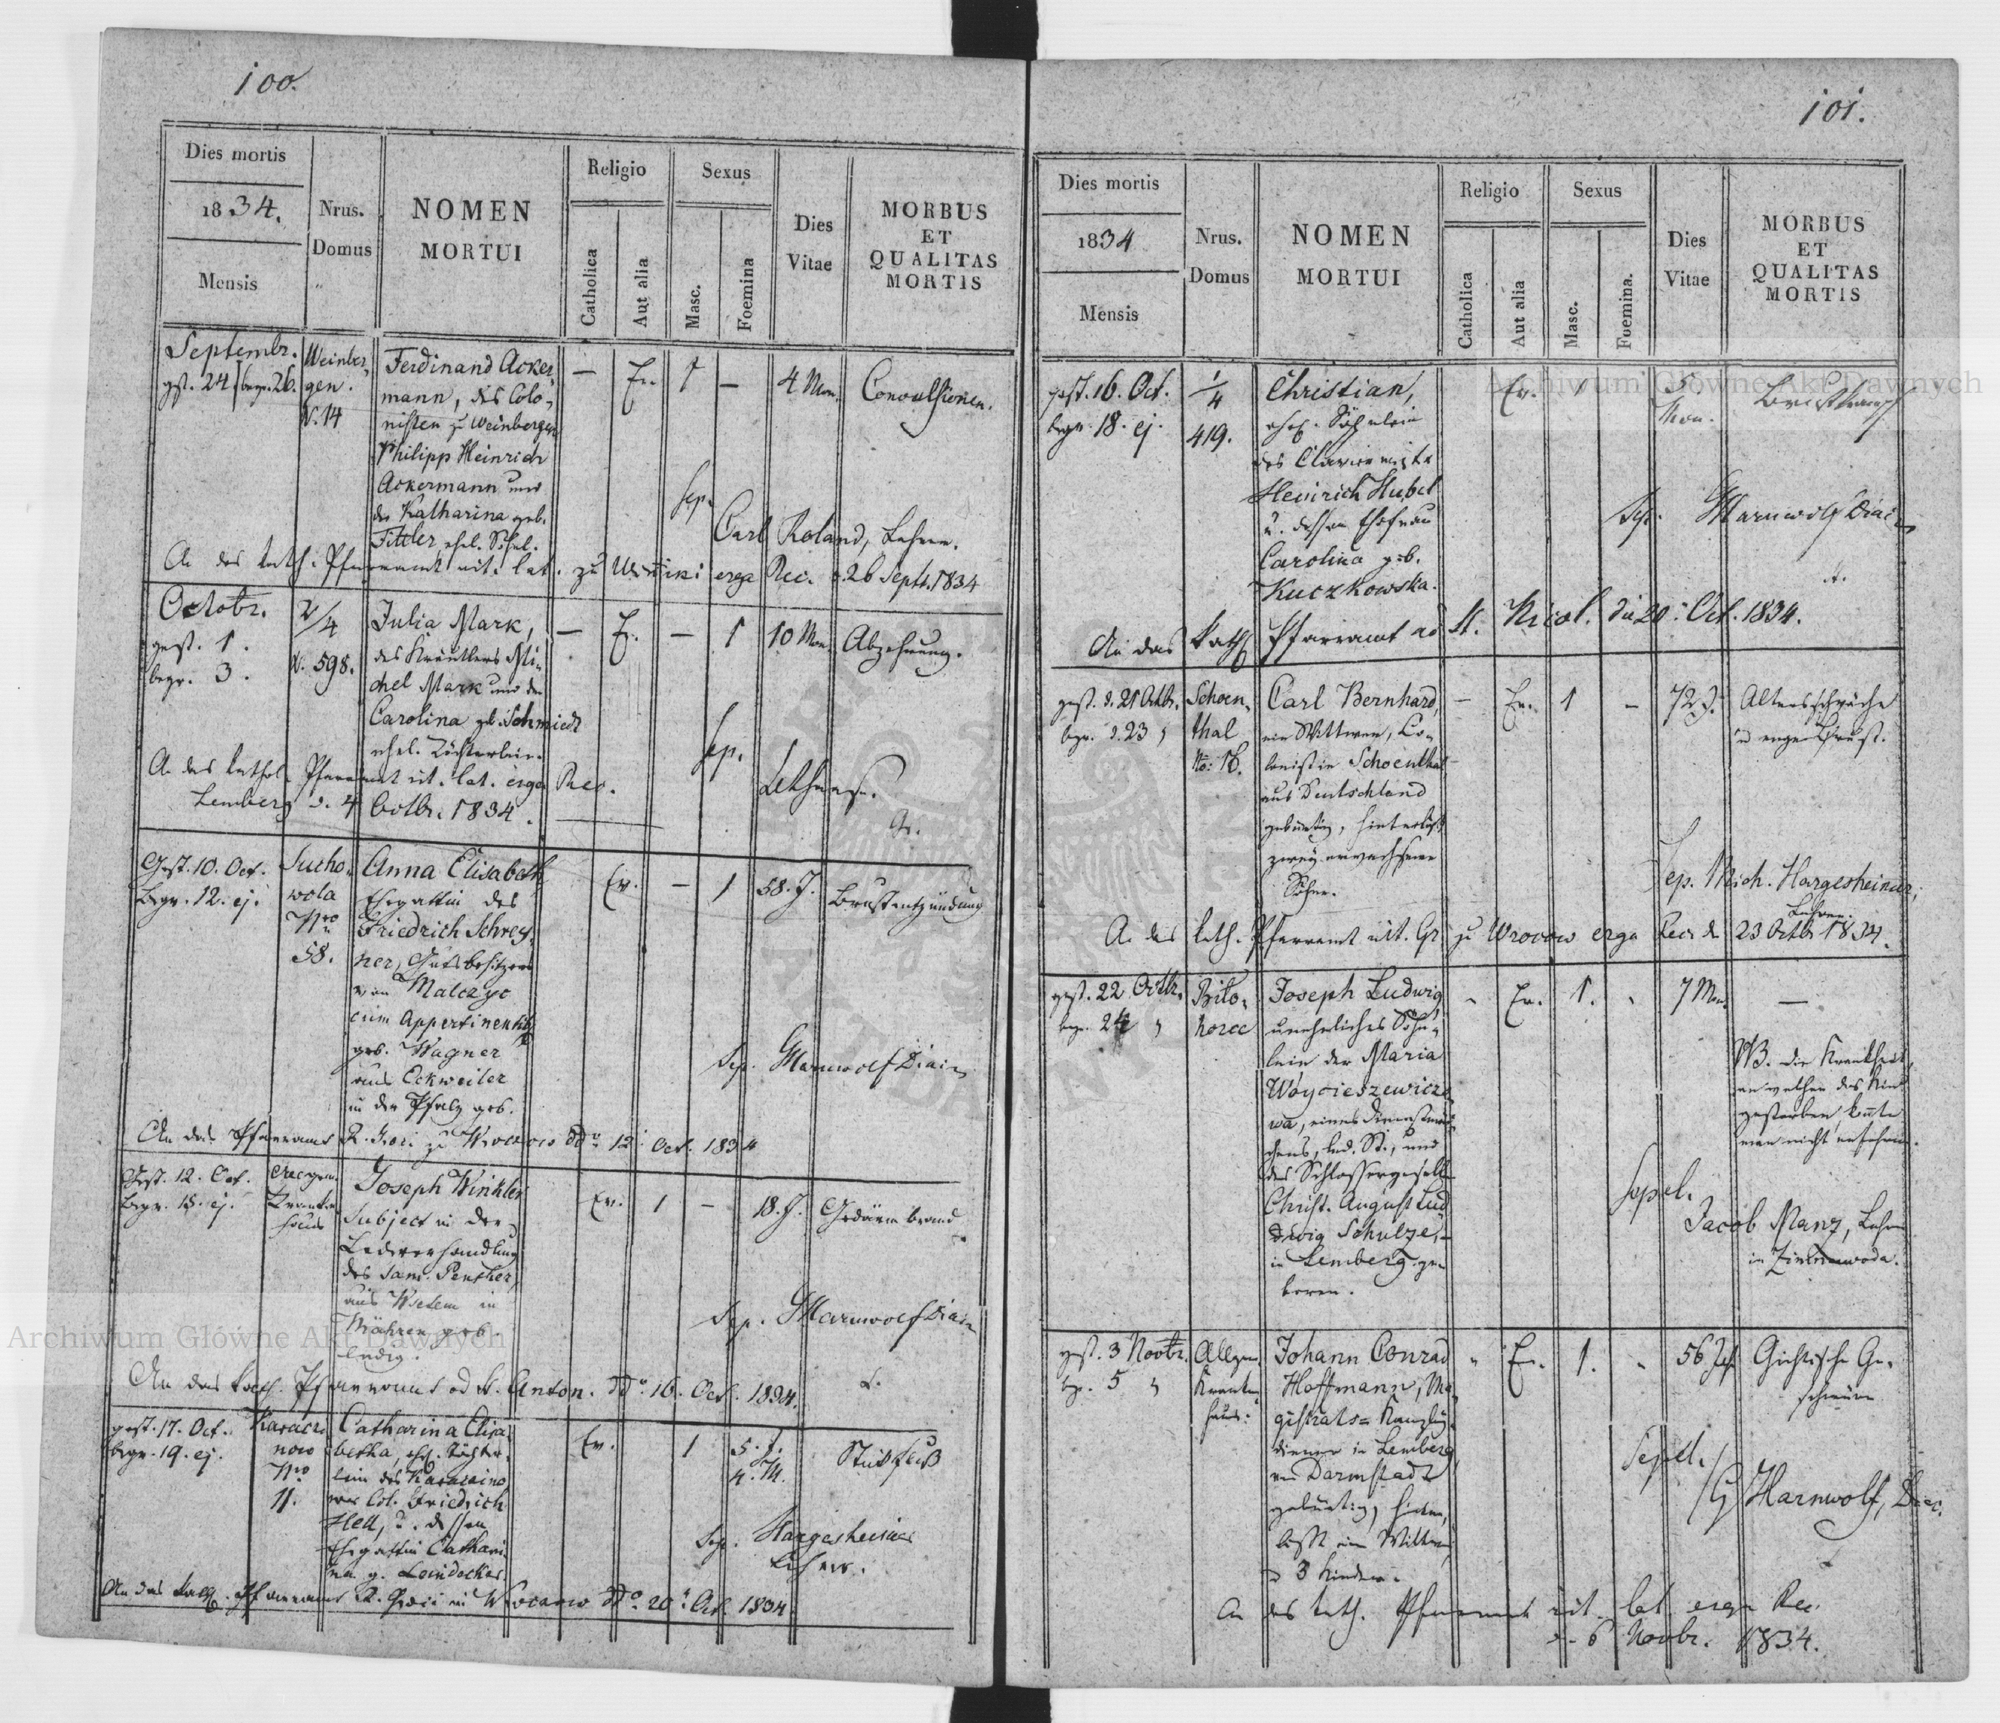 100.
Dies mortis
1834.
Mensis
Nrus.
Domus
NOMEN
MORTUI
Religio
Catholica
Aut alia
Sexus
Masc.
Foemina
Dies
Vitae
MORBUS
ET
QUALITAS
MORTIS
Septembr.
gest. 24. begr. 26.
Weinber-
gen.
N. 14
Ferdinand Acker-
mann, des Colo-
nisten zu Weinbergen
Philipp Heinrich
Ackermann und
der Katharina geb.
Fittler ehel. Söhnl.
— Ev. 1 — 4 Mon. Convulsionen.
Sep.
Carl Roland, Lehrer.
An das kath. Pfarramt rit. lat. zu Winiki erga Rec. d. 26 Septr. 1834
Octobr.
gest. 1.
begr. 3.
2/4
N. 598.
Julia Mark,
des Kräutlers Mi-
chel Mark und der
Carolina geb. Schmiedt
ehel. Töchterlein.
— Ev. — 1 10 Mon. Abzehrung.
Sep.
An das kathol. Pfarramt rit. lat. erga Rec.
Lemberg d. 4 Octbr. 1834.
Gest. 10. Oct.
Begr. 12. ej.
Sucho-
wola
Nro
58.
Anna Elisabeth
Ehegattin des
Friedrich Schrey-
ner, Gutsbesitzers
von Malczyc
cum Appertinentiis
geb. Wagner
aus Eckweiler
in der Pfalz geb.
Ev. — 1 58. J. Brustentzündung
Sep. Harnwolf Diac.
An das Pfarramt R. Graeci zu Wrocow ddo 12. Oct. 1834
Gest. 12. Oct.
Begr. 15. ej.
Allegem.
Kranken
haus
Joseph Winkler
Subject in der
Lederhandlung
des Sam. Penther,
aus
Mähren geb.
ledig.
Ev. 1 — 18. J. Gedärmbrand
Sep. Harnwolf Diac.
An das kath. Pfarramt ad St. Anton. ddo 16. Oct. 1834.
gest. 17. Oct.
begr. 19. ej.
Karaczi
now
Nro
11.
Catharina Elisa-
betha, ehel. Töchter-
lein des Karaczino
wer Col. Friedrich
Hell, u. dessen
Ehegattin Cathari-
na g. Loindecker.
Ev. 1 5. J.
4. M.
Sep. Hargesheimer
Lehrer.
An das kath. Pfarramt R. Graeci in Wrocow ddo 20. Oct. 1834
101.
Dies mortis
1834
Mensis
Nrus.
Domus
NOMEN
MORTUI
Religio
Catholica
Aut alia
Sexus
Masc.
Foemina.
Dies
Vitae
MORBUS
ET
QUALITAS
MORTIS
gest. 16. Oct.
begr. 18. ej.
1/4
419.
Christian,
ehel. Söhnlein
des
Heinrich Hubel
u. dessen Ehefrau
Carolina geb.
Kuczkowska.
Ev. 1
Mon. Brustkrampf
Sep. Harnwolf Diac.
An das kath Pfarramt ad St. Nicol. den 20. Oct. 1834.
gest. d. 21 Octbr.
begr. d. 23 "
Schoen-
thal
No: 16.
Carl Bernhard,
ein Wittwer, Co-
lonist in Schoenthal
aus Deutschland
gebürtig, hinterließ
zwey erwachsene
Söhne.
— Ev. 1 — 72 J. Altersschwäche
u enge Brust.
Sep. Mich. Hargesheimer,
Lehrer.
An das kath. Pfarramt rit. Gr zu Wrocow erga Rec. d. 23 Octbr 1834.
gest. 22 Octbr.
begr. 24 "
Bilo-
horcc
Joseph Ludwig
uneheliches Söhn-
lein der Maria
Woycieszewiczo-
wa, eines Dienstmäd-
chens, led. St., und
des Schlossergesellen
Christ. August Lud-
wig Schulze,
in Lemberg ge-
boren.
" Ev. 1. " 7 Mon. —
NB. die Krankheit,
an welcher das Kind
gestorben, konnte
man nicht erfahren.
Sepel.
Jacob Manz, Lehrer
in
gest. 3 Novbr.
begr. 5 "
Allgem.
Kranken
haus.
Johann Conrad
Hoffmann, Ma-
gistrats-Kanzley-
diener in Lemberg
von Darmstadt
gebürtig, hinter-
läßt eine Wittwe,
u 3 Kinder.
" Ev. 1. " 56 Jah. Gichtische Ge-
schwüre
Sepel.
G Harnwolf, Diac.
An das kath. Pfarramt rit. lat erga Rec.
d. 6 Novbr. 1834.
Archiwum Główne Akt Dawnych
Archiwum Główne Akt Dawnych